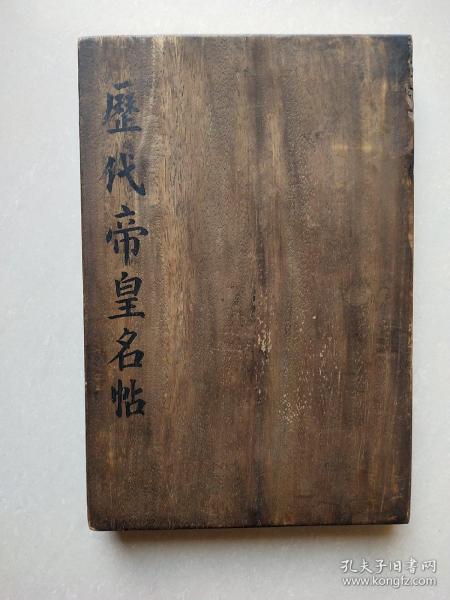 歷代帝皇名帖
孔夫子旧书网
www.kongfz.com